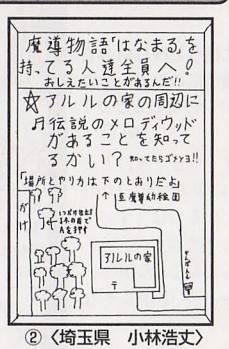 魔導物語「はなまる」を
持ってる人達全員へ!
おしえたいことがあるんだ!!
☆アルルの家の周辺に
♬伝説のメロディウッド
があることを知って
るかい? 知ってたらゴメンヨ!!
「場所とやり方は下のとおりだよ」
がけ
↑豆魔導幼稚園
Aを押す
アルルの家
〒
かんばん
② 〈埼玉県 小林浩丈〉